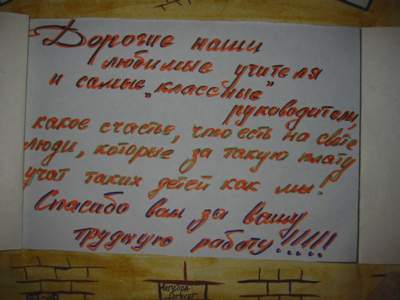 Дорогие наши
любимые учителя
и самые „классные"
руководители,
какое счастье, что есть на свете
люди, которые за такую плату
учат таких детей как мы!
Спасибо вам за вашу
трудную работу!!!!!